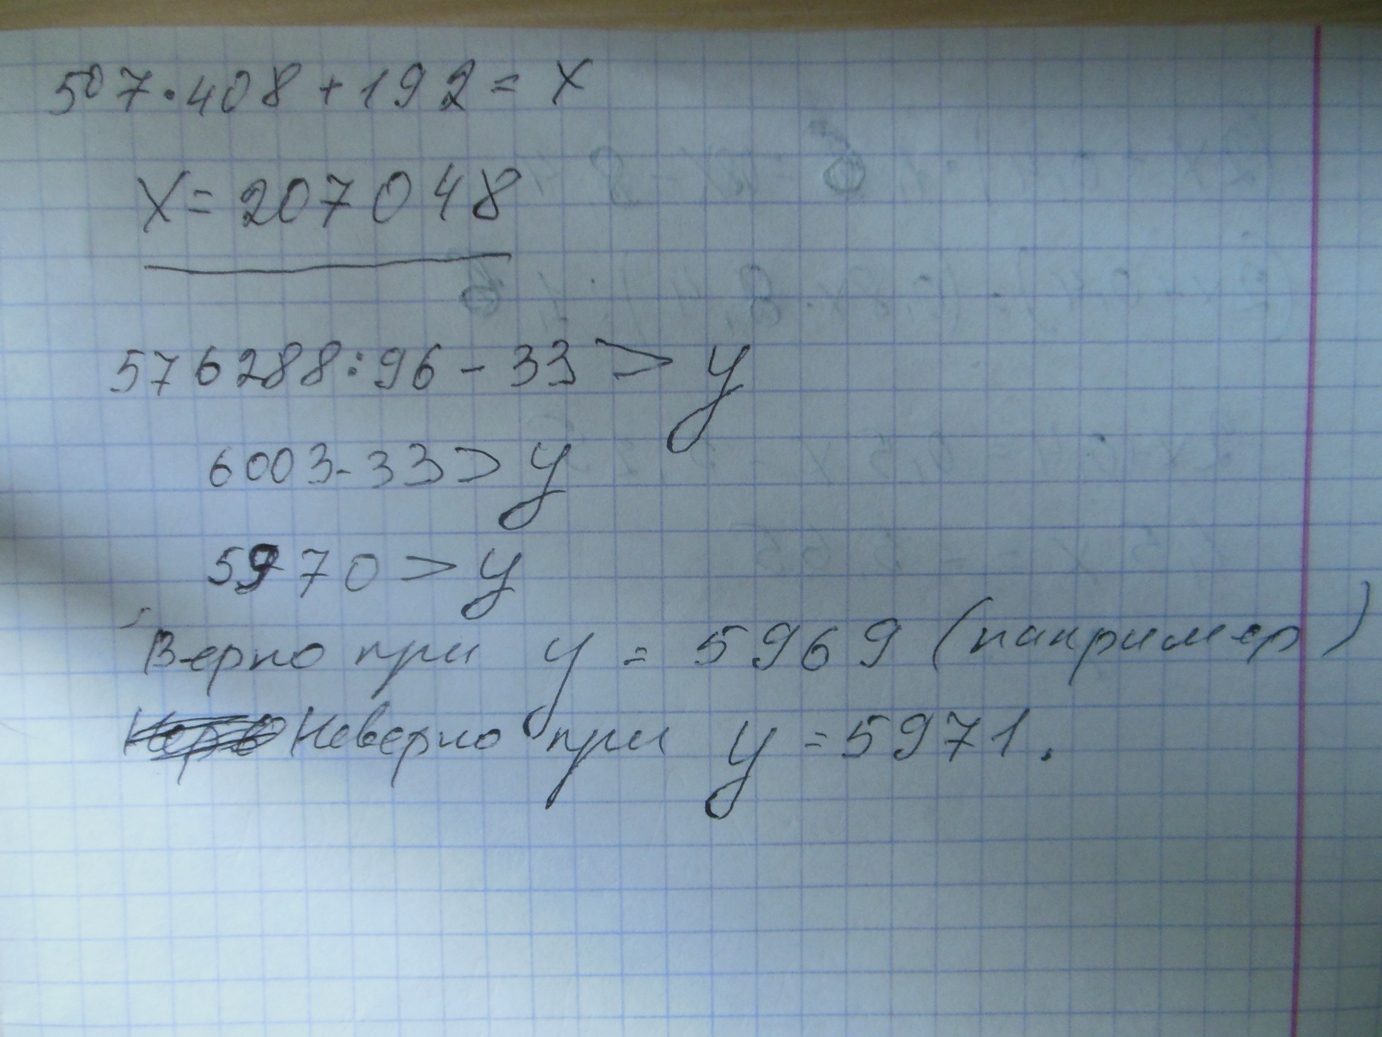 507·408+192=x
x=207048
576288:96-33>y
6003-33>y
5970>y
Верно при y=5969 (например)
Неверно при y=5971.